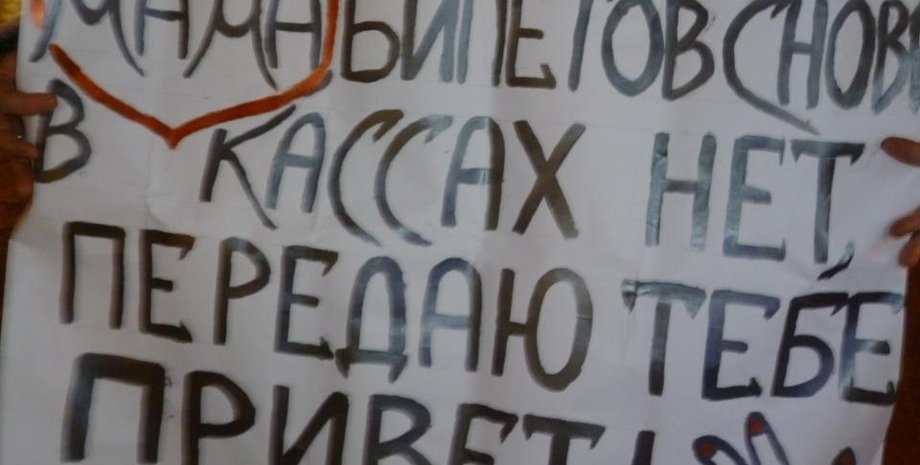 МАМА БИЛЕТОВ СНОВА
В КАССАХ НЕТ,
ПЕРЕДАЮ ТЕБЕ
ПРИВЕТ!